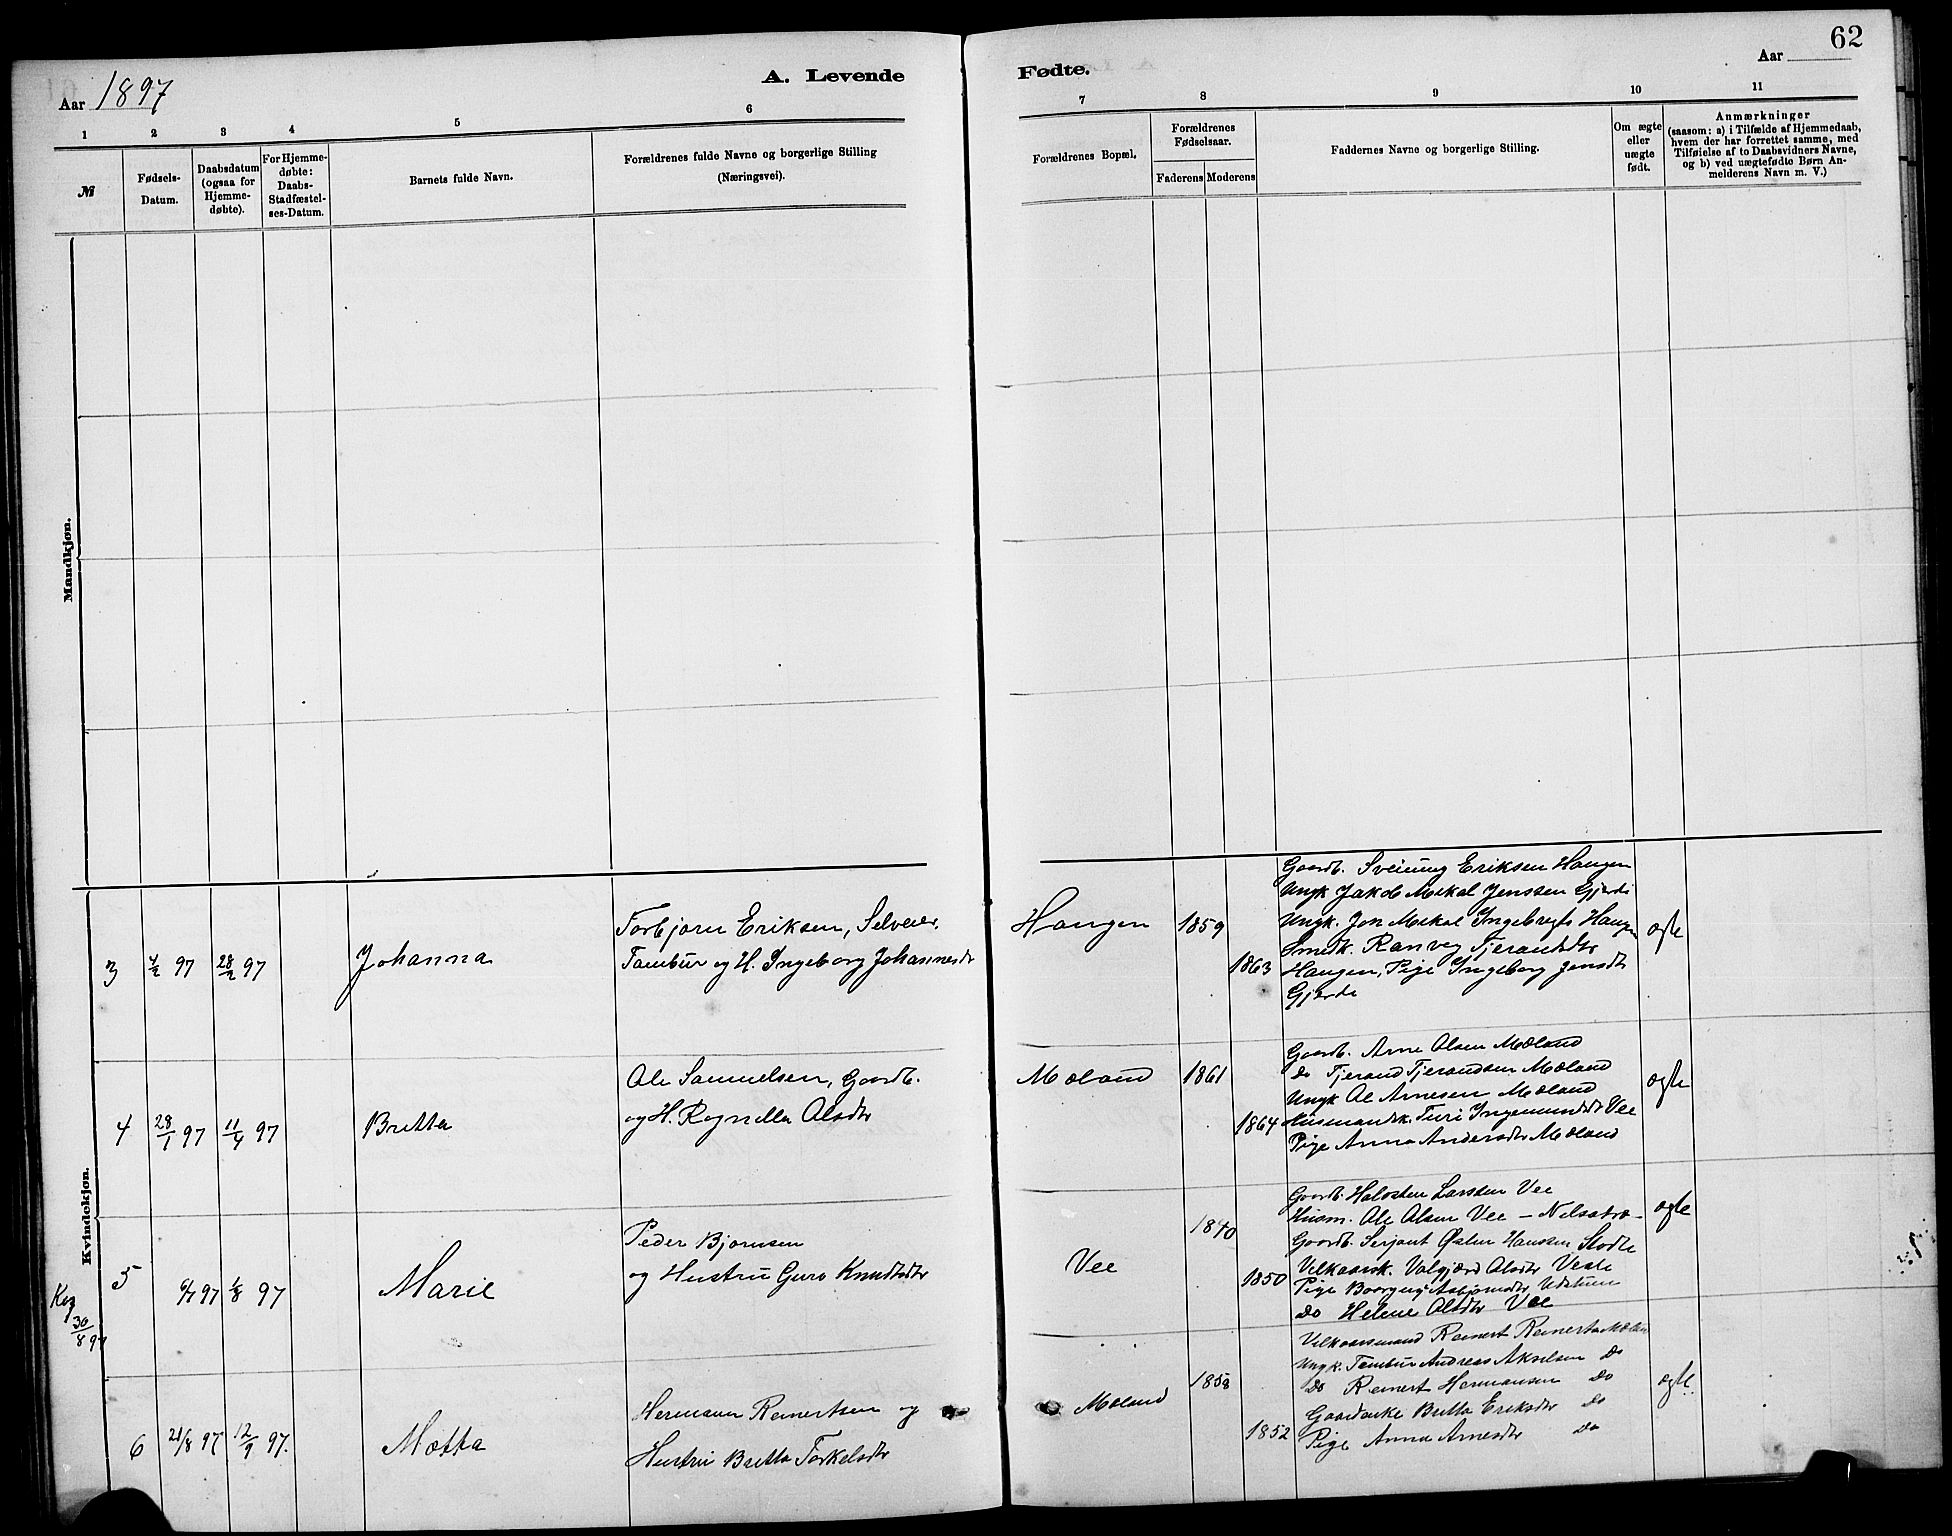 Aar 1897
A. Levende
1
2
3
4
5
6
№
Fødsels-
Datum.
Daabsdatum
(ogsaa for
Hjemme-
døbte).
For Hjemme-
døbte:
Daabs-
Stadfæstel-
ses-Datum.
Barnets fulde Navn.
Forældrenes fulde Navne og borgerlige Stilling
(Næringsvei).
Mandkjøn.
Kvindekjøn.
3
4/2 97
28/2 97
Johanna
Torbjørn Eriksen, Selveier,
Tambur og H. Ingeborg Johannesdtr
4
28/1 97
11/4 97
Britta
Ole Samuelsen, Gaardb.
og H. Ragnilla Olsdtr
5
6/7 97
1/8 97
Marie
Peder Bjørnsen
og Hustru Guro Knudsdtr
30/8 97
6
21/8 97
12/9 97.
Mætta
Hermann Reinertsen og
Hustru Britta Torkelsdtr
Fødte.
Aar
62
7
8
9
10
11
Forældrenes Bopæl.
Forældrenes
Fødselsaar.
Faderens
Moderens
Faddernes Navne og borgerlige Stilling.
Om ægte
eller
uægte
født.
Anmærkninger
(saasom: a) i Tilfælde af Hjemmedaab,
hvem der har forrettet samme, med
Tilføielse af to Daabsvidners Navne,
og b) ved uægtefødte Børn An-
melderens Navn m. V.)
Haugen
1859
1863
Gaardb. Sveinung Eriksen Haugen
Ungk Jakob Mikal Jenssen Gjerde
Ungk. Jon Mikal Ingebregts Haugen
Smedk. Ranveg Tjerandsdtr
Haugen, Pige Ingeborg Jensdtr
Gjerde
ægte
Mæland
1861
1864
Gaardb. Arne Olsen Mæland
do Tjerand Tjerandsen Mæland
Ungk Ole Arnesen Mæland
Husmandsk. Turi Ingemundsdt Vee
Pige Anna Andersdtr Mæland
ægte
Vee
1840
1850
Gaardb. Halvsten Larssen Vee
Husm. Ole Olsen Vee
Gaardb. Serjant Østen Hanssen Stødle
Vilkaarsk. Valgjerd Olsdtr
Pige
Do Helene Olsdtr Vee
ægte
Mæland
1858
1852
Vilkaarsmand Reinert Reinertsen
Ungk. Tambur Andreas Akselsen Do
Do Reinert Hermansen Do
Gaardenke Britta Eriksdtr Do
Pige Anna Arnesdtr Do
ægte